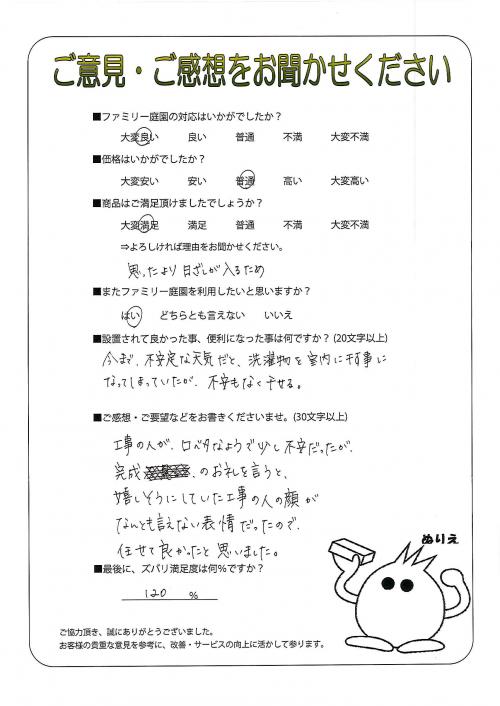 ご意見・ご感想をお聞かせください
■ファミリー庭園の対応はいかがでしたか？
大変良い 良い 普通 不満 大変不満
■価格はいかがでしたか？
大変安い 安い 普通 高い 大変高い
■商品はご満足頂けましたでしょうか？
大変満足 満足 普通 不満 大変不満
⇒よろしければ理由をお聞かせください。
思ったより日ざしが入るため
■またファミリー庭園を利用したいと思いますか？
はい どちらとも言えない いいえ
■設置されて良かった事、便利になった事は何ですか？（20文字以上）
今まで、不安定な天気だと、洗濯物を室内に干す事に
なってしまっていたが、不安もなく干せる。
■ご感想・ご要望などをお書きくださいませ。（30文字以上）
工事の人が、口ベタなようで少し不安だったが、
完成 のお礼を言うと、
嬉しそうにしていた工事の人の顔が
なんとも言えない表情だったので、
任せて良かったと思いました。
■最後に、ズバリ満足度は何％ですか？
120 %
ぬりえ
ご協力頂き、誠にありがとうございました。
お客様の貴重な意見を参考に、改善・サービスの向上に活かして参ります。